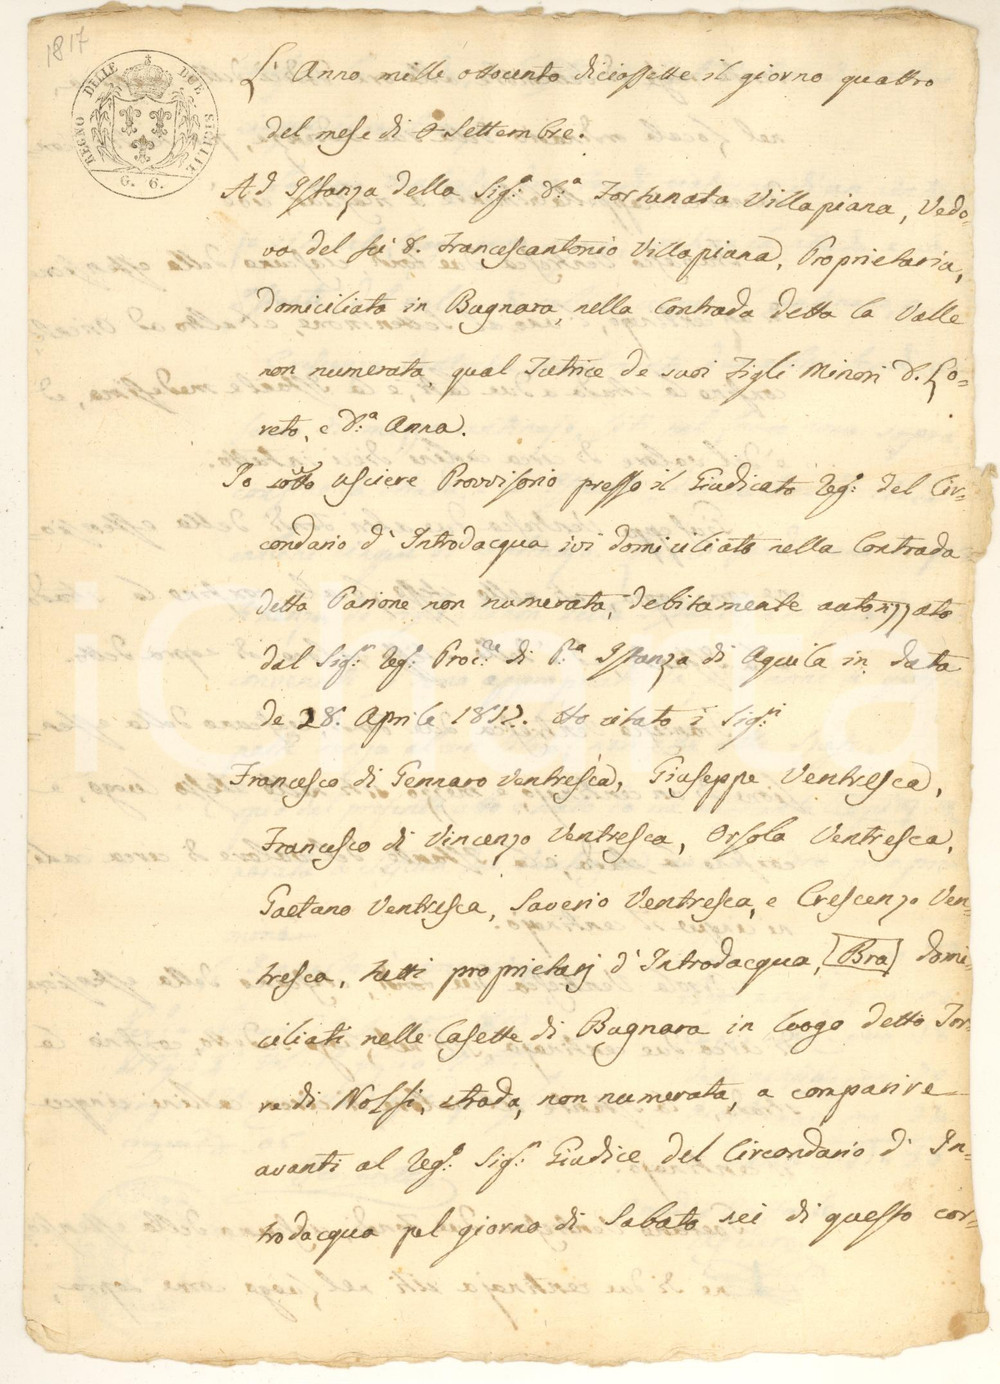 1817
REGNO DELLE DUE SICILIE
G. 6.
L'Anno mille ottocento diciassette il giorno quattro
del mese di Settembre.
Ad Istanza della Sig.ª D.ª Fortunata Villapiana, Vedo-
va del fù D. Francescantonio Villapiana, Proprietaria,
domiciliata in Bugnara, nella Contrada detta la Valle
non numerata, qual Tutrice de suoi Figli Minori D. Lo-
reto, e D.ª Anna.
Io sotto usciere Provvisorio presso il Giudicato Reg.º del Cir-
condario d'Introdacqua ivi domiciliato nella Contrada
detta Parione non numerata, debitamente autorizzato
dal Sig.r Reg.º Proc.re di P.ª Istanza di Aquila in data
de 28. Aprile 1812. Ho citato i Sig.ri
Francesco di Gennaro Ventresca, Giuseppe Ventresca,
Francesco di Vincenzo Ventresca, Orsola Ventresca,
Gaetano Ventresca, Saverio Ventresca, e Crescenzo Ven-
tresca, tutti proprietarj d'Introdacqua, Bra domi-
ciliati nelle Casette di Bugnara in luogo detto Tor-
re di Nolfi, strada, non numerata, a comparire
avanti al Reg.º Sig.r Giudice del Circondario d'In-
trodacqua pel giorno di Sabato sei di questo cor-
iCharta